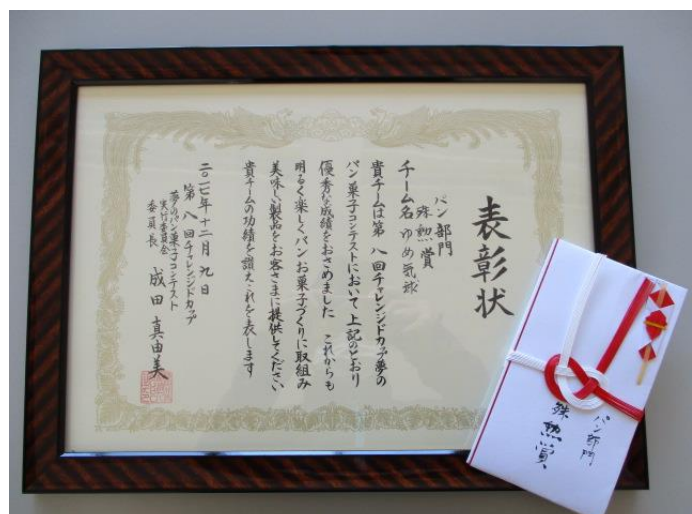 表彰状
パン部門
殊勲賞
チーム名 ゆめ気球
貴チームは第八回チャレンジドカップ夢の
パン菓子コンテストにおいて上記のとおり
優秀な成績をおさめました これからも
明るく楽しくパンお菓子づくりに取組み
美味しい製品をお客さまに提供してください
貴チームの功績を讃えこれを表します
二〇一七年十二月九日
第八回チャレンジドカップ
夢のパン菓子コンテスト
実行委員会
委員長 成田真由美
パン部門
殊勲賞